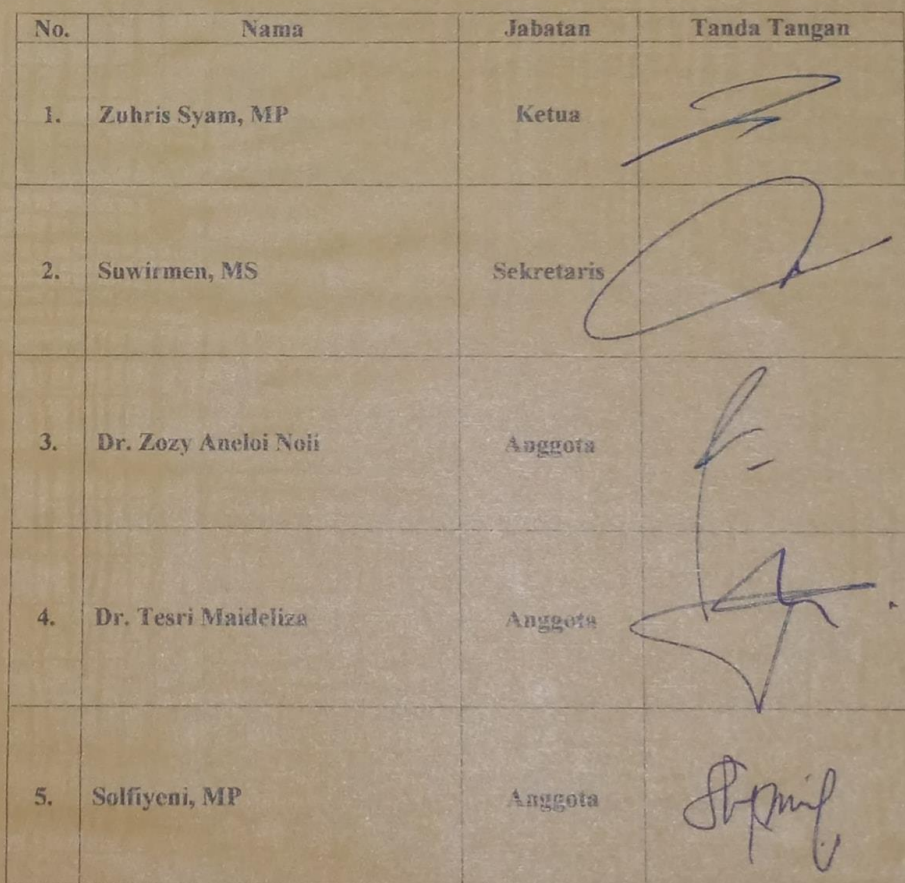 No. Nama Jabatan Tanda Tangan
1. Zuhris Syam, MP Ketua
2. Suwirmen, MS Sekretaris
3. Dr. Zozy Aneloi Noli Anggota
4. Dr. Tesri Maideliza Anggota
5. Solfiyeni, MP Anggota